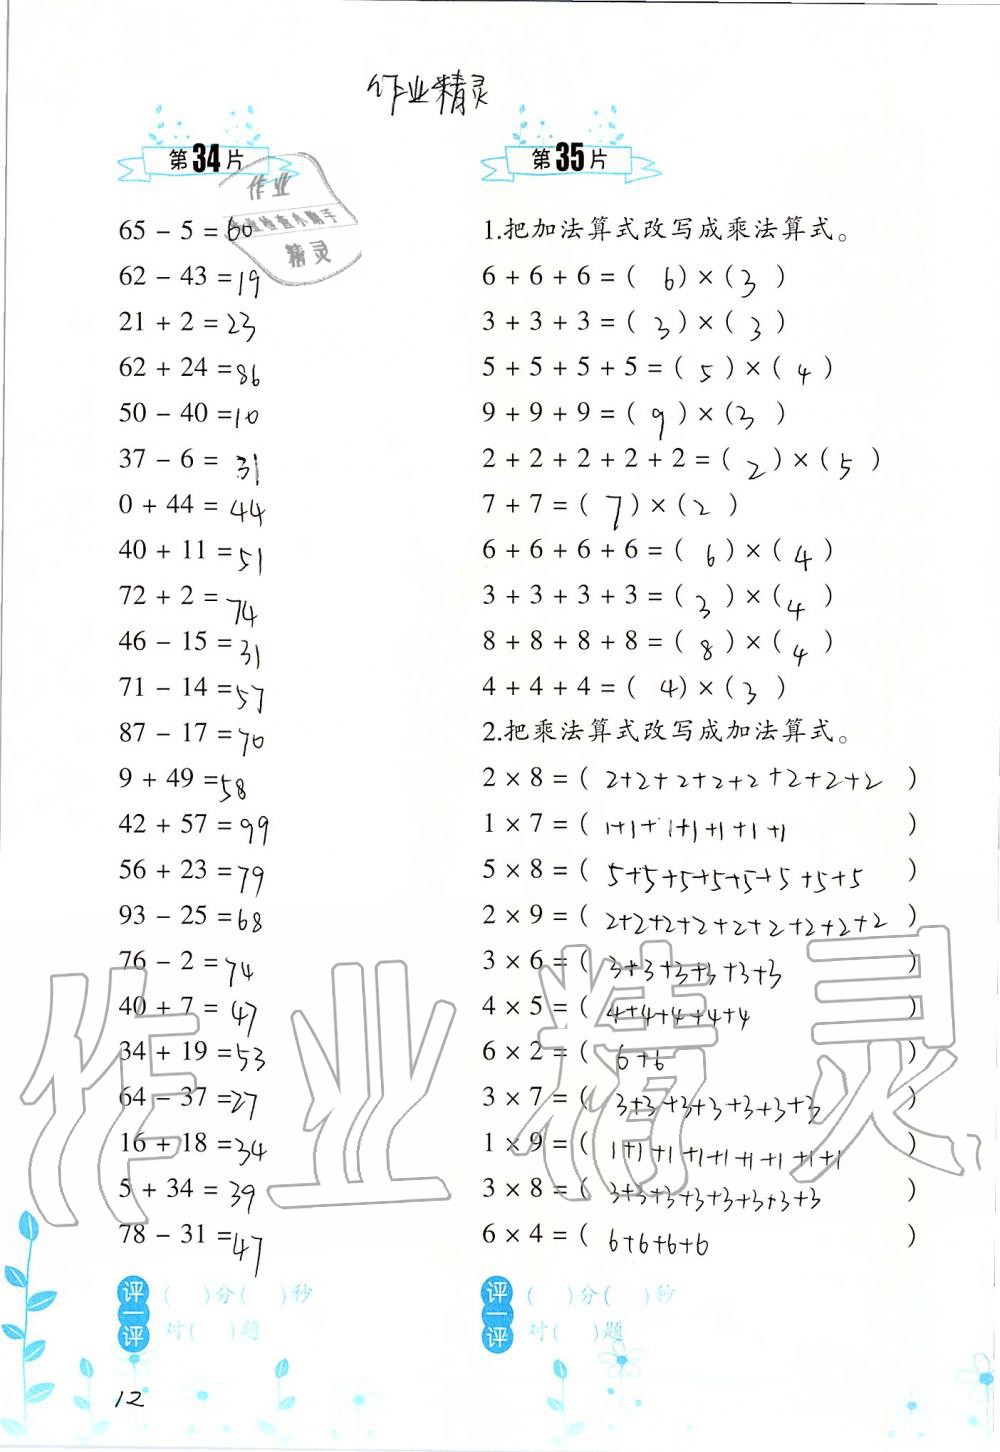 作业精灵
第34片
作业
作业检查小帮手
精灵
65 - 5 = 60
62 - 43 = 19
21 + 2 = 23
62 + 24 = 86
50 - 40 = 10
37 - 6 = 31
0 + 44 = 44
40 + 11 = 51
72 + 2 = 74
46 - 15 = 31
71 - 14 = 57
87 - 17 = 70
9 + 49 = 58
42 + 57 = 99
56 + 23 = 79
93 - 25 = 68
76 - 2 = 74
40 + 7 = 47
34 + 19 = 53
64 - 37 = 27
16 + 18 = 34
5 + 34 = 39
78 - 31 = 47
评一评
( )分( )秒
对( )题
第35片
1.把加法算式改写成乘法算式。
6 + 6 + 6 = ( 6 ) × ( 3 )
3 + 3 + 3 = ( 3 ) × ( 3 )
5 + 5 + 5 + 5 = ( 5 ) × ( 4 )
9 + 9 + 9 = ( 9 ) × ( 3 )
2 + 2 + 2 + 2 + 2 = ( 2 ) × ( 5 )
7 + 7 = ( 7 ) × ( 2 )
6 + 6 + 6 + 6 = ( 6 ) × ( 4 )
3 + 3 + 3 + 3 = ( 3 ) × ( 4 )
8 + 8 + 8 + 8 = ( 8 ) × ( 4 )
4 + 4 + 4 = ( 4 ) × ( 3 )
2.把乘法算式改写成加法算式。
2 × 8 = ( 2+2+2+2+2+2+2+2 )
1 × 7 = ( 1+1+1+1+1+1+1 )
5 × 8 = ( 5+5+5+5+5+5+5+5 )
2 × 9 = ( 2+2+2+2+2+2+2+2+2 )
3 × 6 = ( 3+3+3+3+3+3 )
4 × 5 = ( 4+4+4+4+4 )
6 × 2 = ( 6+6 )
3 × 7 = ( 3+3+3+3+3+3+3 )
1 × 9 = ( 1+1+1+1+1+1+1+1+1 )
3 × 8 = ( 3+3+3+3+3+3+3+3 )
6 × 4 = ( 6+6+6+6 )
评一评
( )分( )秒
对( )题
作业精灵
12